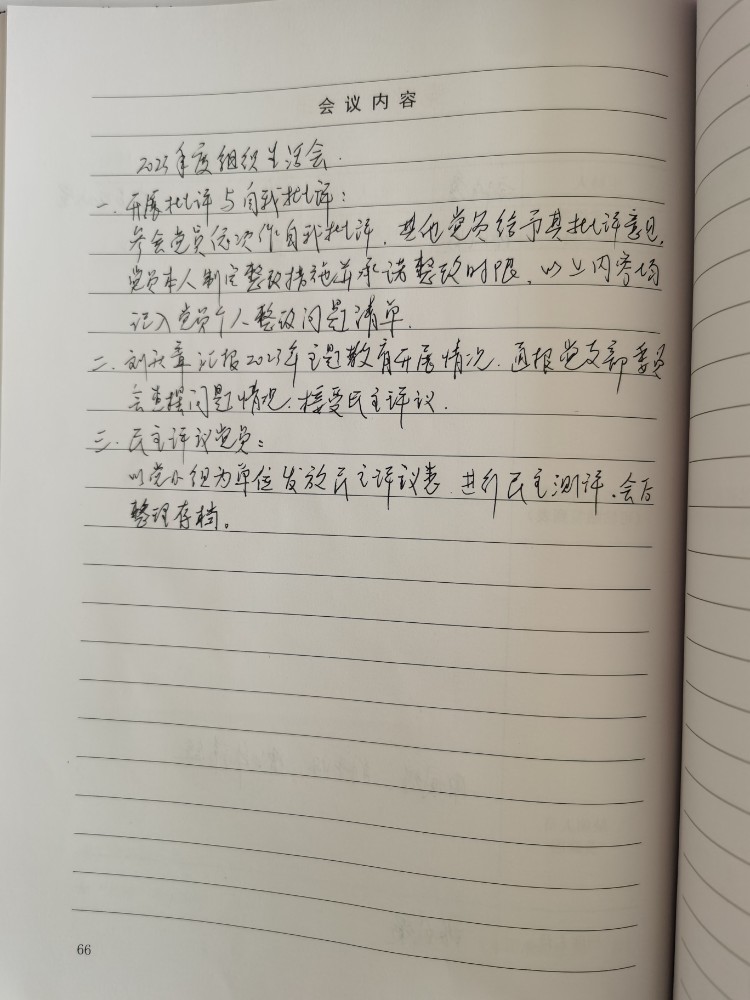 会议内容
2023年度组织生活会.
一.开展批评与自我批评:
参会党员依次作自我批评,其他党员给予其批评意见,
党员本人制定整改措施并承诺整改时限,以上内容均
记入党员个人整改问题清单.
二.刘秋章汇报2023年主题教育开展情况.通报党支部委员
会查摆问题情况.接受民主评议.
三.民主评议党员:
以党小组为单位发放民主评议表.进行民主测评.会后
整理存档。
66